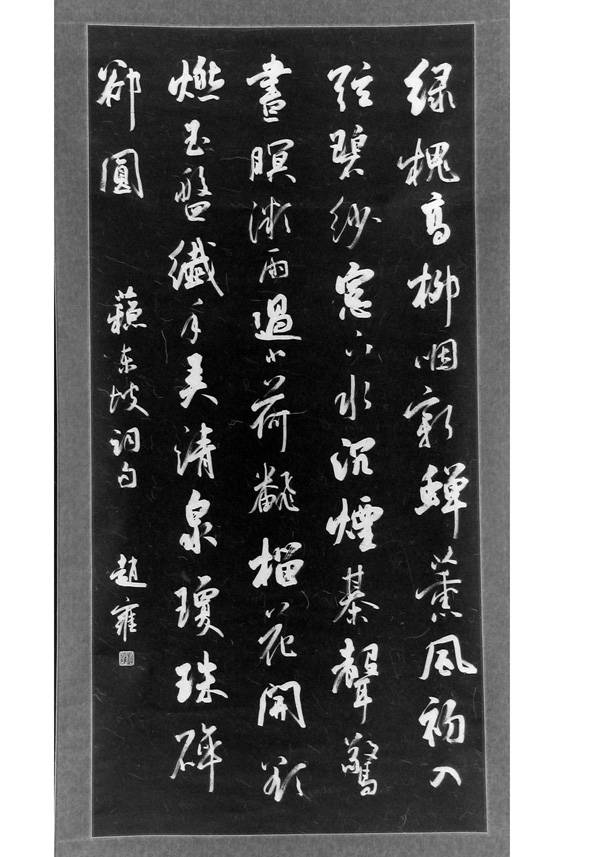 綠槐高柳咽新蟬薰風初入
弦碧紗窓下水沉煙棊聲驚
晝瞑微雨過小荷飜榴花開欲
燃玉盤纖手弄清泉瓊珠碎
卻圓
蘇東坡詞句 趙雍